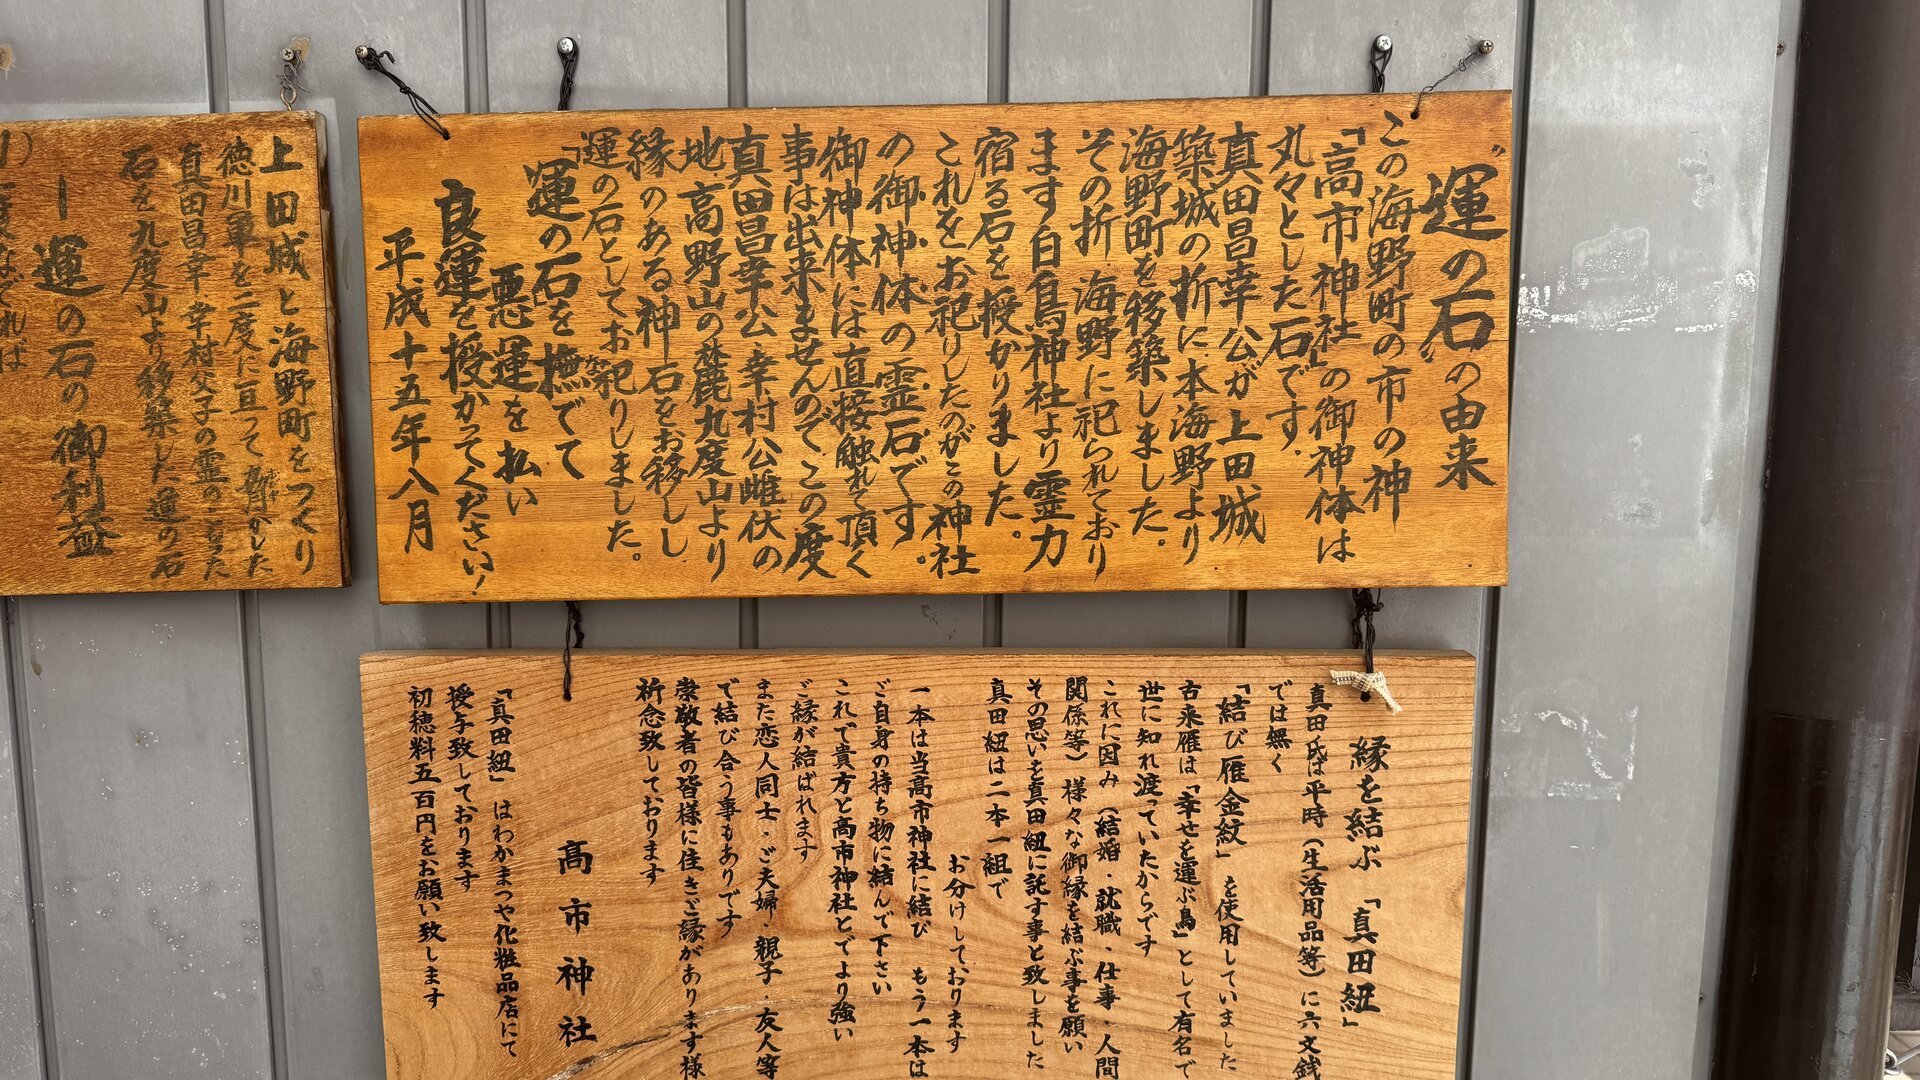 "運の石"の由来
この海野町の市の神
「高市神社」の御神体は
丸々とした石です.
真田昌幸公が上田城
築城の折に、本海野より
海野町を移築しました.
その折、海野に祀られており
ます白鳥神社より霊力
宿る石を授かりました。
これをお祀りしたのがこの神社
の御神体の霊石です。
御神体には直接触れて頂く
事は出来ませんのでこの度
真田昌幸公、幸村公雌伏の
地、高野山の麓九度山より
縁のある神石をお移しし
運の石としてお祀りしました。
「運の石」を撫でて
な
悪運を払い
良運を授かってください!
平成十五年八月
上田城と海野町をつくり
徳川軍を二度に亘って負かした
真田昌幸、幸村父子の霊のこもった
石を九度山より移築した運の石
運の石の御利益
なでれば
縁を結ぶ 「真田紐」
真田氏は平時(生活用品等)に六文銭
では無く
「結び雁金紋」 を使用していました
古来雁は「幸せを運ぶ鳥」として有名で
世に知れ渡っていたからです
これに因み (結婚・就職・仕事・人間
関係等) 様々な御縁を結ぶ事を願い
その思いを真田紐に託す事と致しました
真田紐は二本一組で
お分けしております
一本は当高市神社に結び もう一本は
ご自身の持ち物に結んで下さい
これで貴方と高市神社とでより強い
ご縁が結ばれます
また恋人同士・ご夫婦・親子・友人等
で結び合う事もありです
崇敬者の皆様に佳きご縁があります様
祈念致しております
高市神社
「真田紐」 はわかまつや化粧品店にて
授与致しております
初穂料五百円をお願い致します